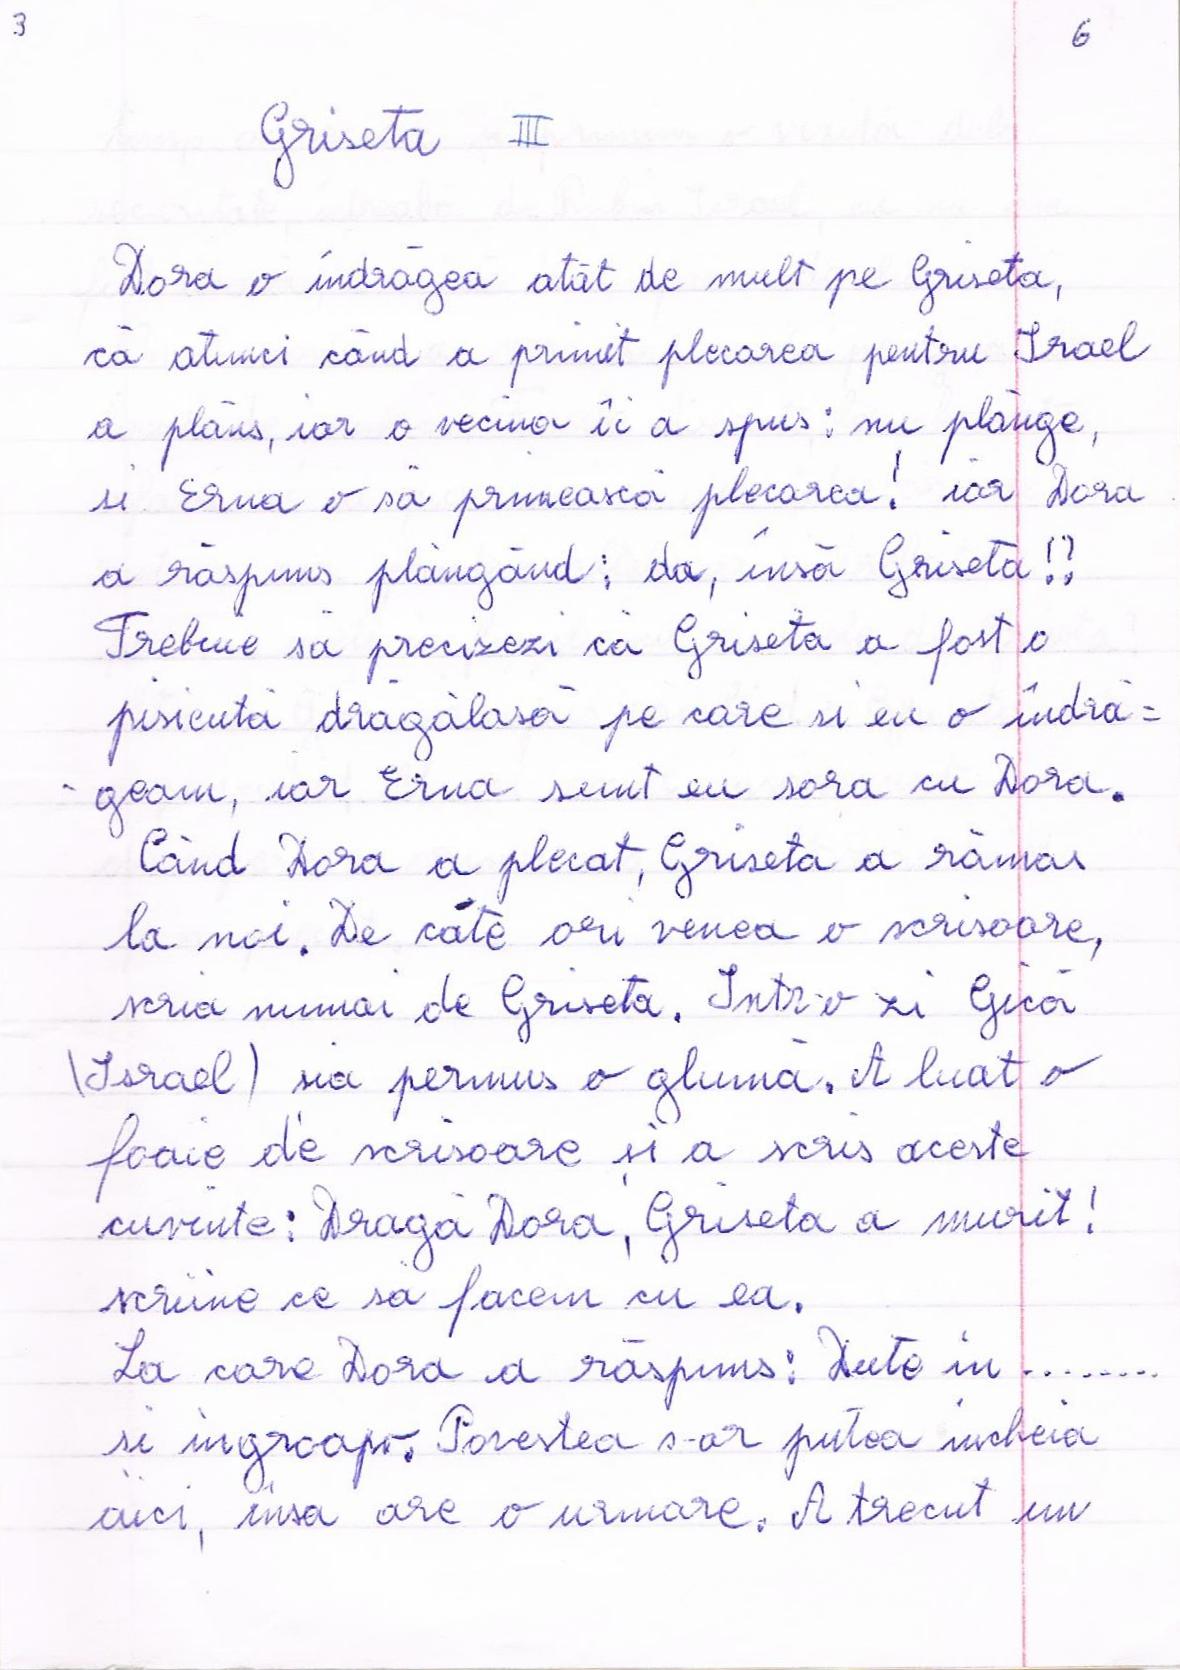 3
6
Griseta III
Dora o îndrăgea atăt de mult pe Griseta,
că atunci când a primit plecarea pentru Israel
a plâns, iar o vecina îi a spus: nu plânge,
si Erna o să primească plecarea! iar Dora
a răspuns plângând: da, însă Griseta!?
Trebuie să precizezi că Griseta a fost o
pisicută drăgălasă pe care si eu o îndră=
-geam, iar Erna sunt eu sora cu Dora.
Când Dora a plecat, Griseta a rămas
la noi. De câte ori venea o scrisoare,
scria numai de Griseta. Intr-o zi Gică
(Israel) sia permus o glumă. A luat o
foaie de scrisoare și a scris aceste
cuvinte: Dragă Dora, Griseta a murit!
scriine ce să facem cu ea.
La care Dora a răspuns: Dute in ........
si ingroapo. Povestea s-ar putea incheia
aici, insa are o urmare. A trecut un